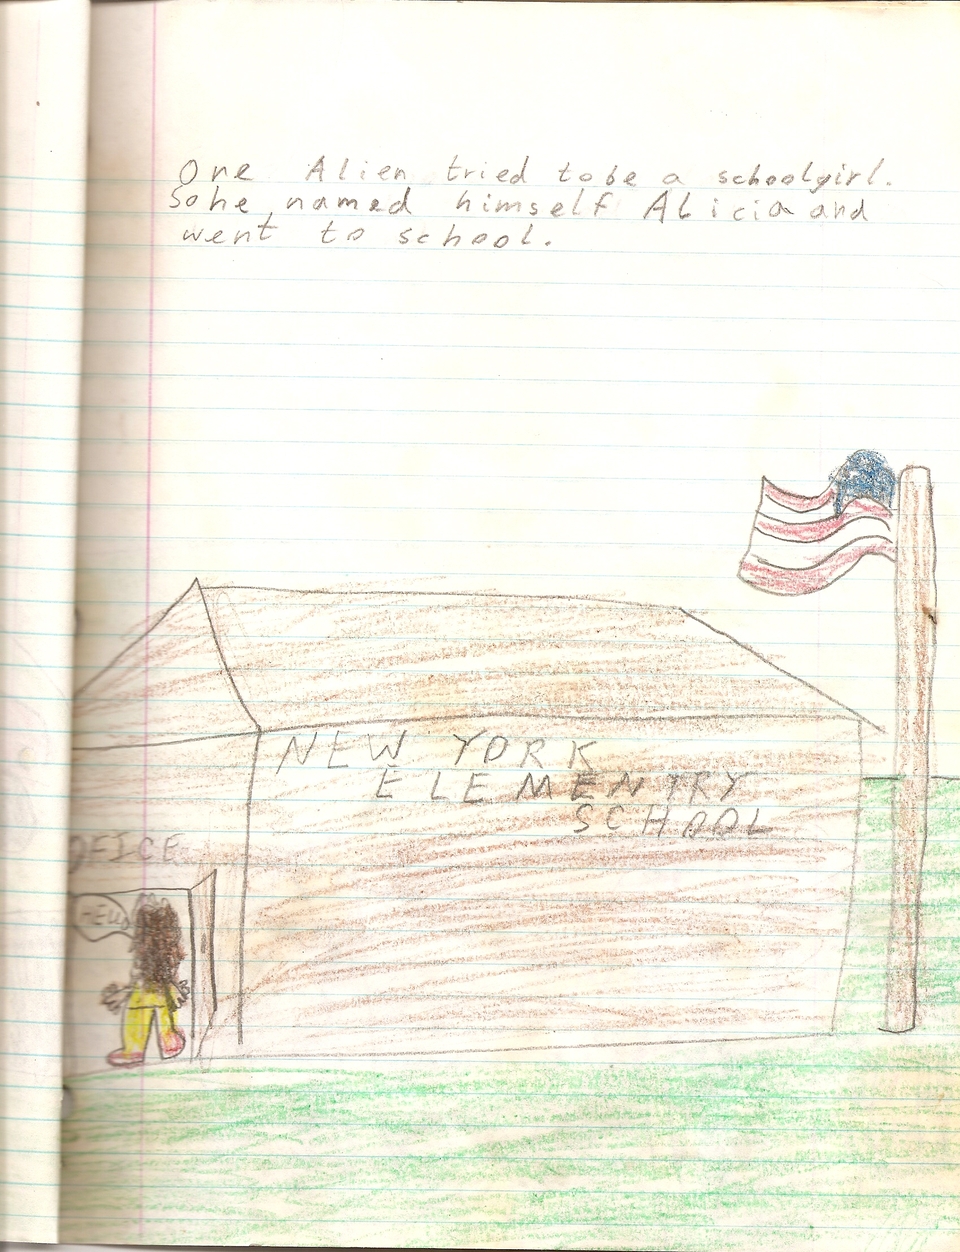 One Alien tried to be a schoolgirl.
So he named himself Alicia and
went to school.
NEW YORK
ELEMENTRY
SCHOOL
OFFICE